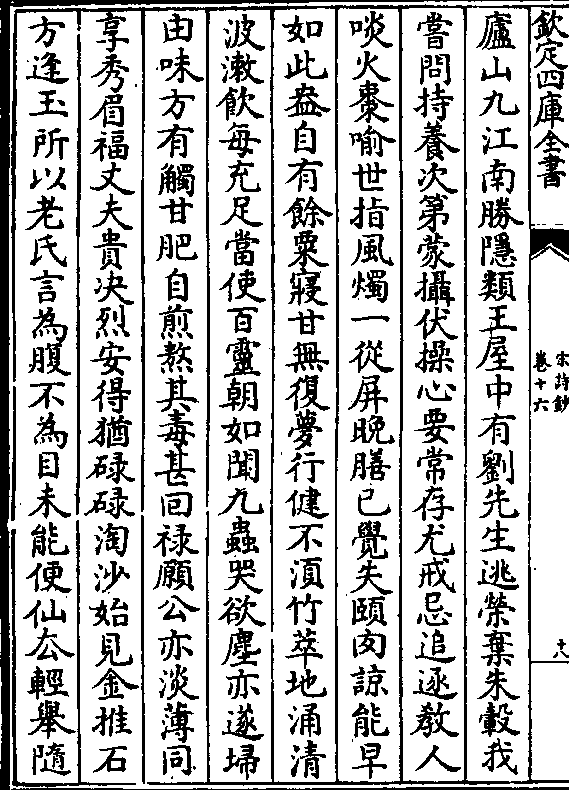 欽定四庫全書
宋詩鈔
卷十六
十八
廬山九江南勝隱類王屋中有劉先生逃榮棄朱轂我
嘗問持養次第蒙攝伏操心要常存尤戒忌追逐教人
啖火棗喻世指風燭一從屏晚膳已覺失頤肉諒能早
如此盎自有餘粟寢甘無復夢行健不湏竹萃地涌清
波漱飲每充足當使百靈朝如聞九蟲哭欲塵亦遂埽
由味方有觸甘肥自煎熬其毒甚回祿願公亦淡薄同
享秀眉福丈夫貴決烈安得猶碌碌淘沙始見金推石
方逢玉所以老氏言為腹不為目未能便仙厺輕舉隨